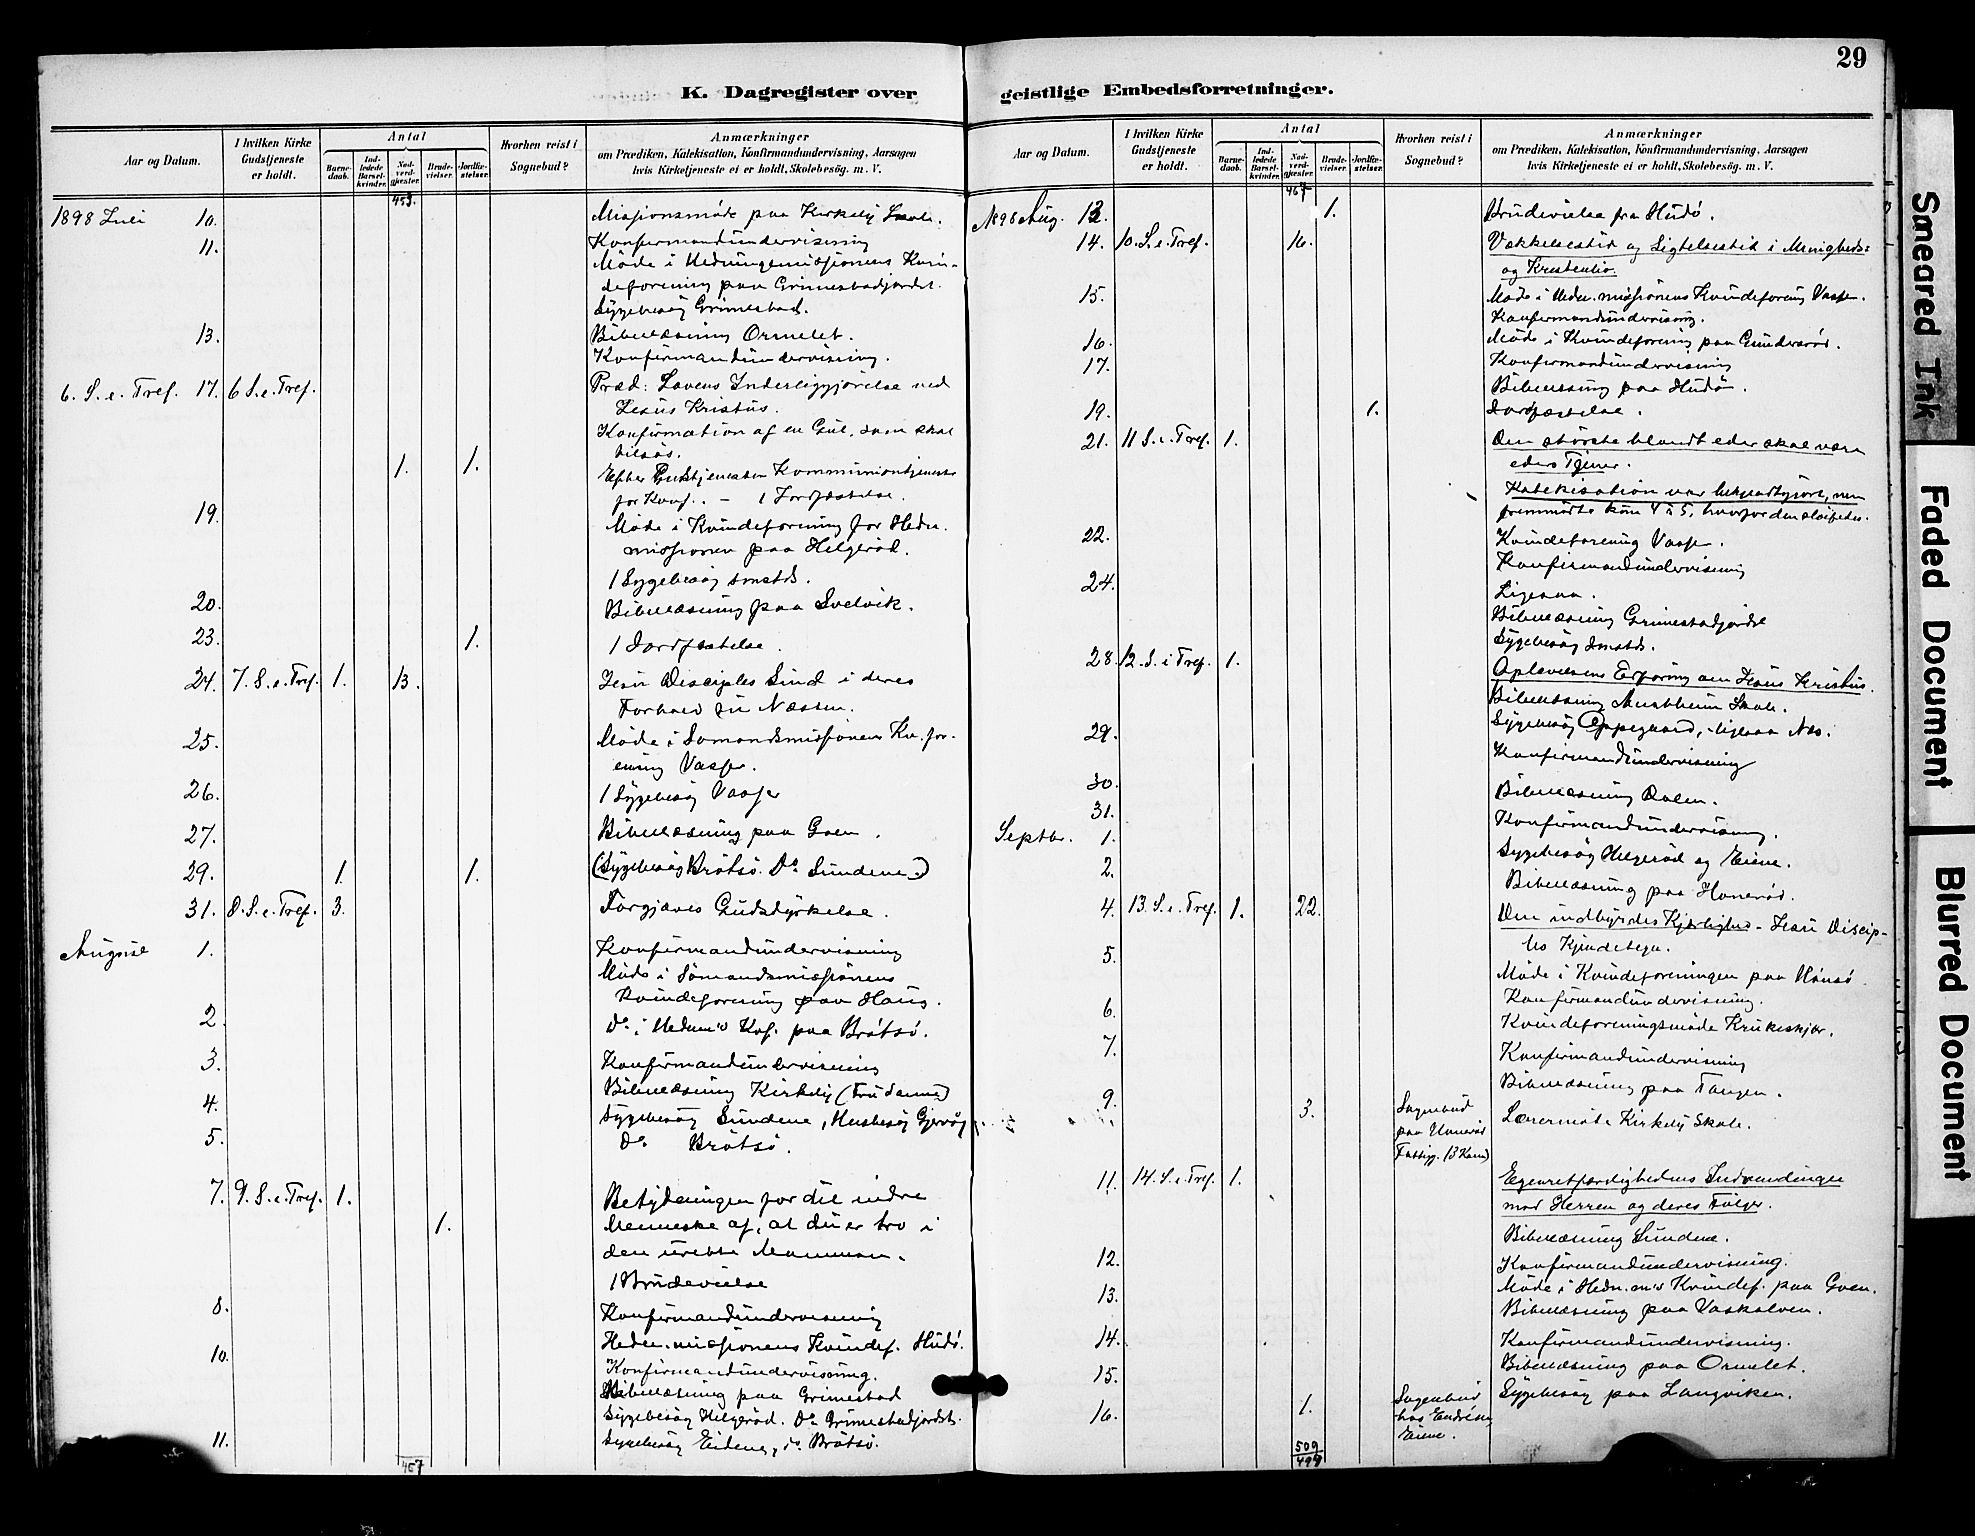 29
K. Dagregister over geistlige Embedsforretninger.
Aar og Datum.
I hvilken Kirke Gudstjeneste er holdt.
Antal
Barne-daab.
Ind-ledede Barsel-kvinder.
Nad-verd-gjæster.
Brude-vielser.
Jordfæ-stelser.
Hvorhen reist i Sognebud?
Anmærkninger
om Prædiken, Katekisation, Konfirmandundervisning, Aarsagen
hvis Kirketjeneste ei er holdt, Skolebesög. m. V.
453.
1898 Juli 10. Missionsmöde paa Kirkelij Skole.
11. Konfirmandundervisning
Möde i Hedningemissionens Kvin-
deforening paa Grimestadjordet.
Sygebesög Grimestad.
13. Bibellæsning Ormelet.
Konfirmandundervisning.
6. S. e. Tref. 17. 6 S. e. Tref. Præd: Lovens Inderliggjörelse ved
Jesus Kristus.
Konfirmation af en Gut, som skal
tilsös.
1. 1. Efter Gudstjenesten Kommuniontjeneste
for Konf. - 1 Jordfæstelse.
19. Möde i Kvindeforening for Hedn.
missionen paa Helgeröd.
1 Sygebesög smstds.
20. Bibellæsning paa Svelvik.
23. 1. 1 Jordfæstelse.
24. 7. S. e. Tref. 1. 13. Jesu Disciples Sind i deres
Forhold til Næsten.
25. Möde i Sömandsmissionens Kv. for-
ening Vasser.
26. 1 Sygebesög Vasser
27. Bibellæsning paa Goen.
29. 1. 1. (Sygebesög Brötsö. Do Sundene.)
31. 8. S. e. Tref. 3. Forgjæves Gudsdyrkelse.
August 1. Konfirmandundervisning
Möde i Sömandsmissionens
Kvindeforening paa Haug.
2. Do i Hednm's Kvf. paa Brötsö.
3. Konfirmandundervisning
Bibellæsning Kirkelij (Fru Sanne)
4. Sygebesög Sundene, Husbesög Gjervåg
5. Do Brötsö.
7. 9. S. e. Tref. 1. Betydningen for det indre
1. Menneske af, at du er tro i
den urette Mammon.
1 Brudevielse
8. Konfirmandundervisning
Hedn. missionens Kvindef. Hudö.
10. Konfirmandundervisning.
Bibellæsning paa Grimestad
Sygebesög Helgeröd. Do Grimestadjordet.
11. Sygebesög Eidene, do Brötsö.
467
Aar og Datum.
I hvilken Kirke Gudstjeneste er holdt.
Antal
Barne-daab.
Ind-ledede Barsel-kvinder.
Nad-verd-gjæster.
Brude-vielser.
Jordfæ-stelser.
Hvorhen reist i Sognebud?
Anmærkninger
om Prædiken, Katekisation, Konfirmandundervisning, Aarsagen
hvis Kirketjeneste ei er holdt, Skolebesög. m. V.
467
1898 Aug. 13. 1. Brudevielse fra Hudö.
14. 10. S. e. Tref. 16. Vækkelsestid og Sigtelsestid i Menigheds-
og Kristenliv.
15. Möde i Hedn. missionens Kvindeforening Vasser.
Konfirmandundervisning.
16. Möde i Kvindeforening paa Gunderöd.
17. Konfirmandundervisning
Bibellæsning paa Hudö.
19. 1. Jordfæstelse.
21. 11 S. e. Tref. 1. Den störste blandt eder skal være
eders Tjener.
Katekisation var bekjendtgjort, men
fremmödte kun 4 à 5, hvorfor den slöifedes.
22. Kvindeforening Vasser.
Konfirmandundervisning
24. Ligesaa.
Bibellæsning Grimestadjordet
Sygebesög smstds.
28. 12. S. e. Tref. 1. Oplevelsens Erfaring om Jesus Kristus.
Bibellæsning Skole.
29. Sygebesög Oppegaard, ligesaa Næs.
Konfirmandundervisning
30. Bibellæsning Dalen.
31. Konfirmandundervisning.
Septbr. 1. Sygebesög Helgeröd og Eiene.
2. Bibellæsning paa Honeröd.
4. 13. S. e. Tref. 1. 22. Den indbyrdes Kjærlighed - Jesu Discip-
les Kjendetegn.
5. Möde i Kvindeforeningen paa
Konfirmandundervisning.
6. Kvindeforeningsmöde Krukeskjær.
7. Konfirmandundervisning
Bibellæsning paa Tangen.
9. 3. Sognebud Lærermöte Kirkelij Skole.
paa Honeröd
Fattigg. (3 Kom)
11. 14. S. e. Tref. 1. Egenretfærdighedens Indvendinger
mod Herren og deres Fölger.
Bibellæsning Sundene.
12. Konfirmandundervisning.
Möde i Hedn. m's Kvindef. paa Goen.
13. Bibellæsning paa Vaskalven.
14. Konfirmandundervisning.
Bibellæsning paa Ormelet.
15. Sygebesög paa Langviken.
16. 1. Sognebud
hos
Eiene.
509
499
Smeared Ink
Faded Document
Blurred Document